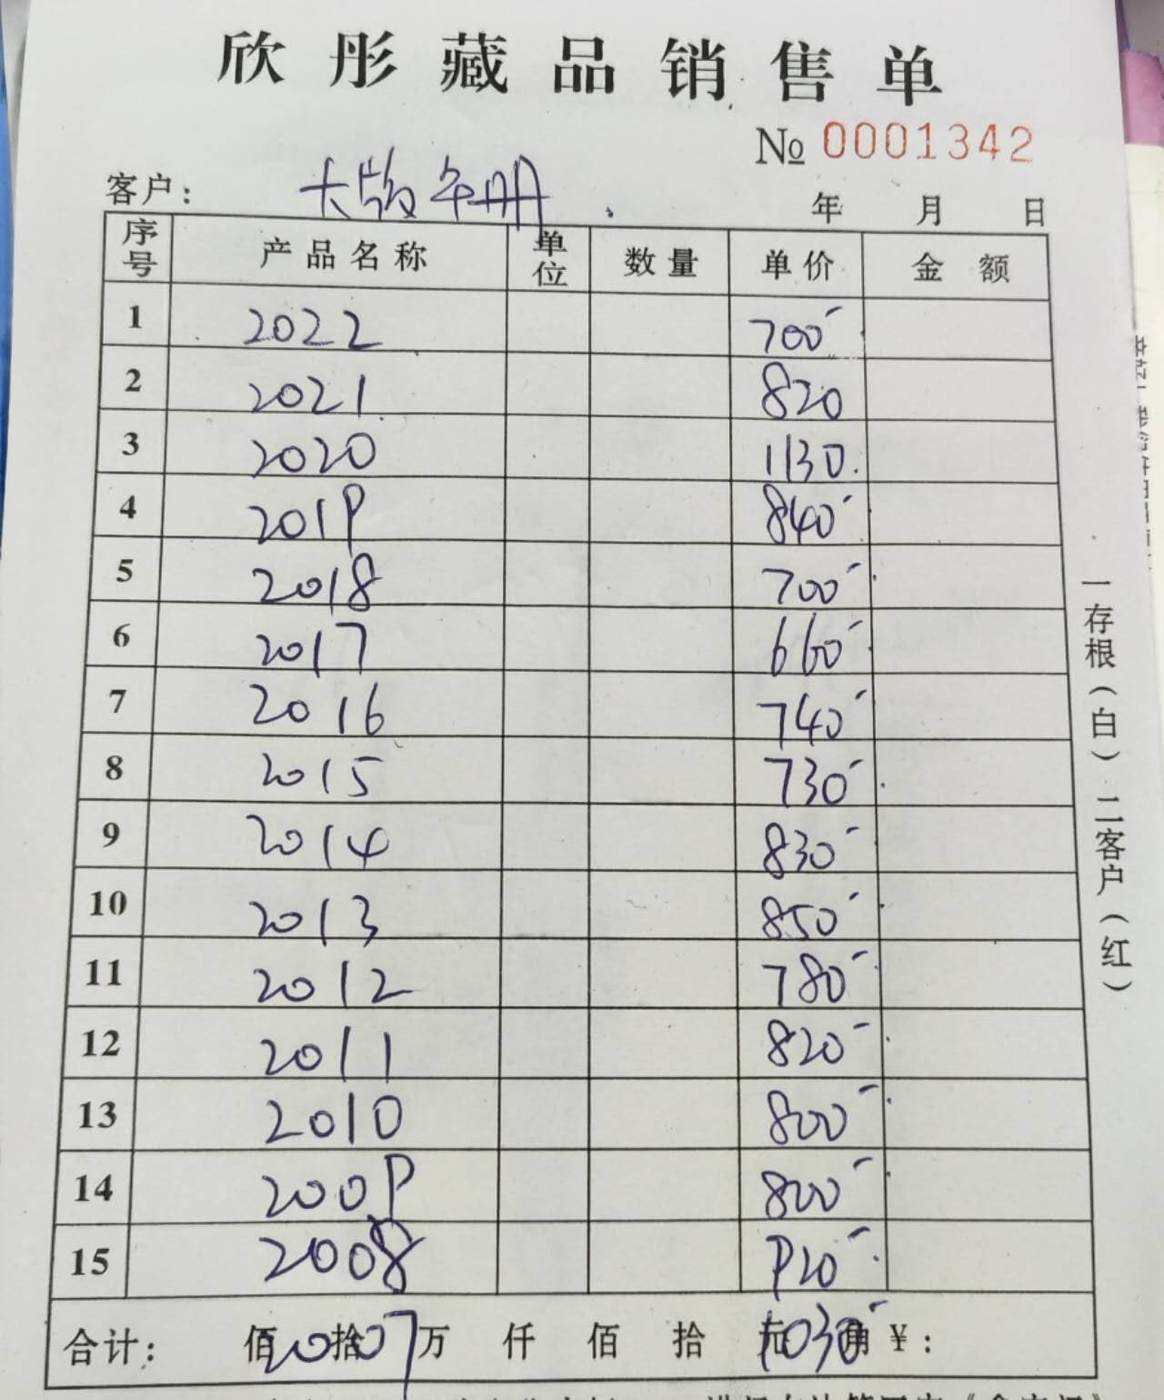 欣彤藏品销售单
№ 0001342
客户: 大版年册 年 月 日
序号 产品名称 单位 数量 单价 金额
1 2022 700
2 2021 820
3 2020 1130
4 2019 840
5 2018 700
6 2017 660
7 2016 740
8 2015 730
9 2014 830
10 2013 850
11 2012 780
12 2011 820
13 2010 800
14 2009 800
15 2008 920
合计: 佰 拾 万 仟 佰 拾 元 角 ¥:
2007 1030
一存根(白) 二客户(红)